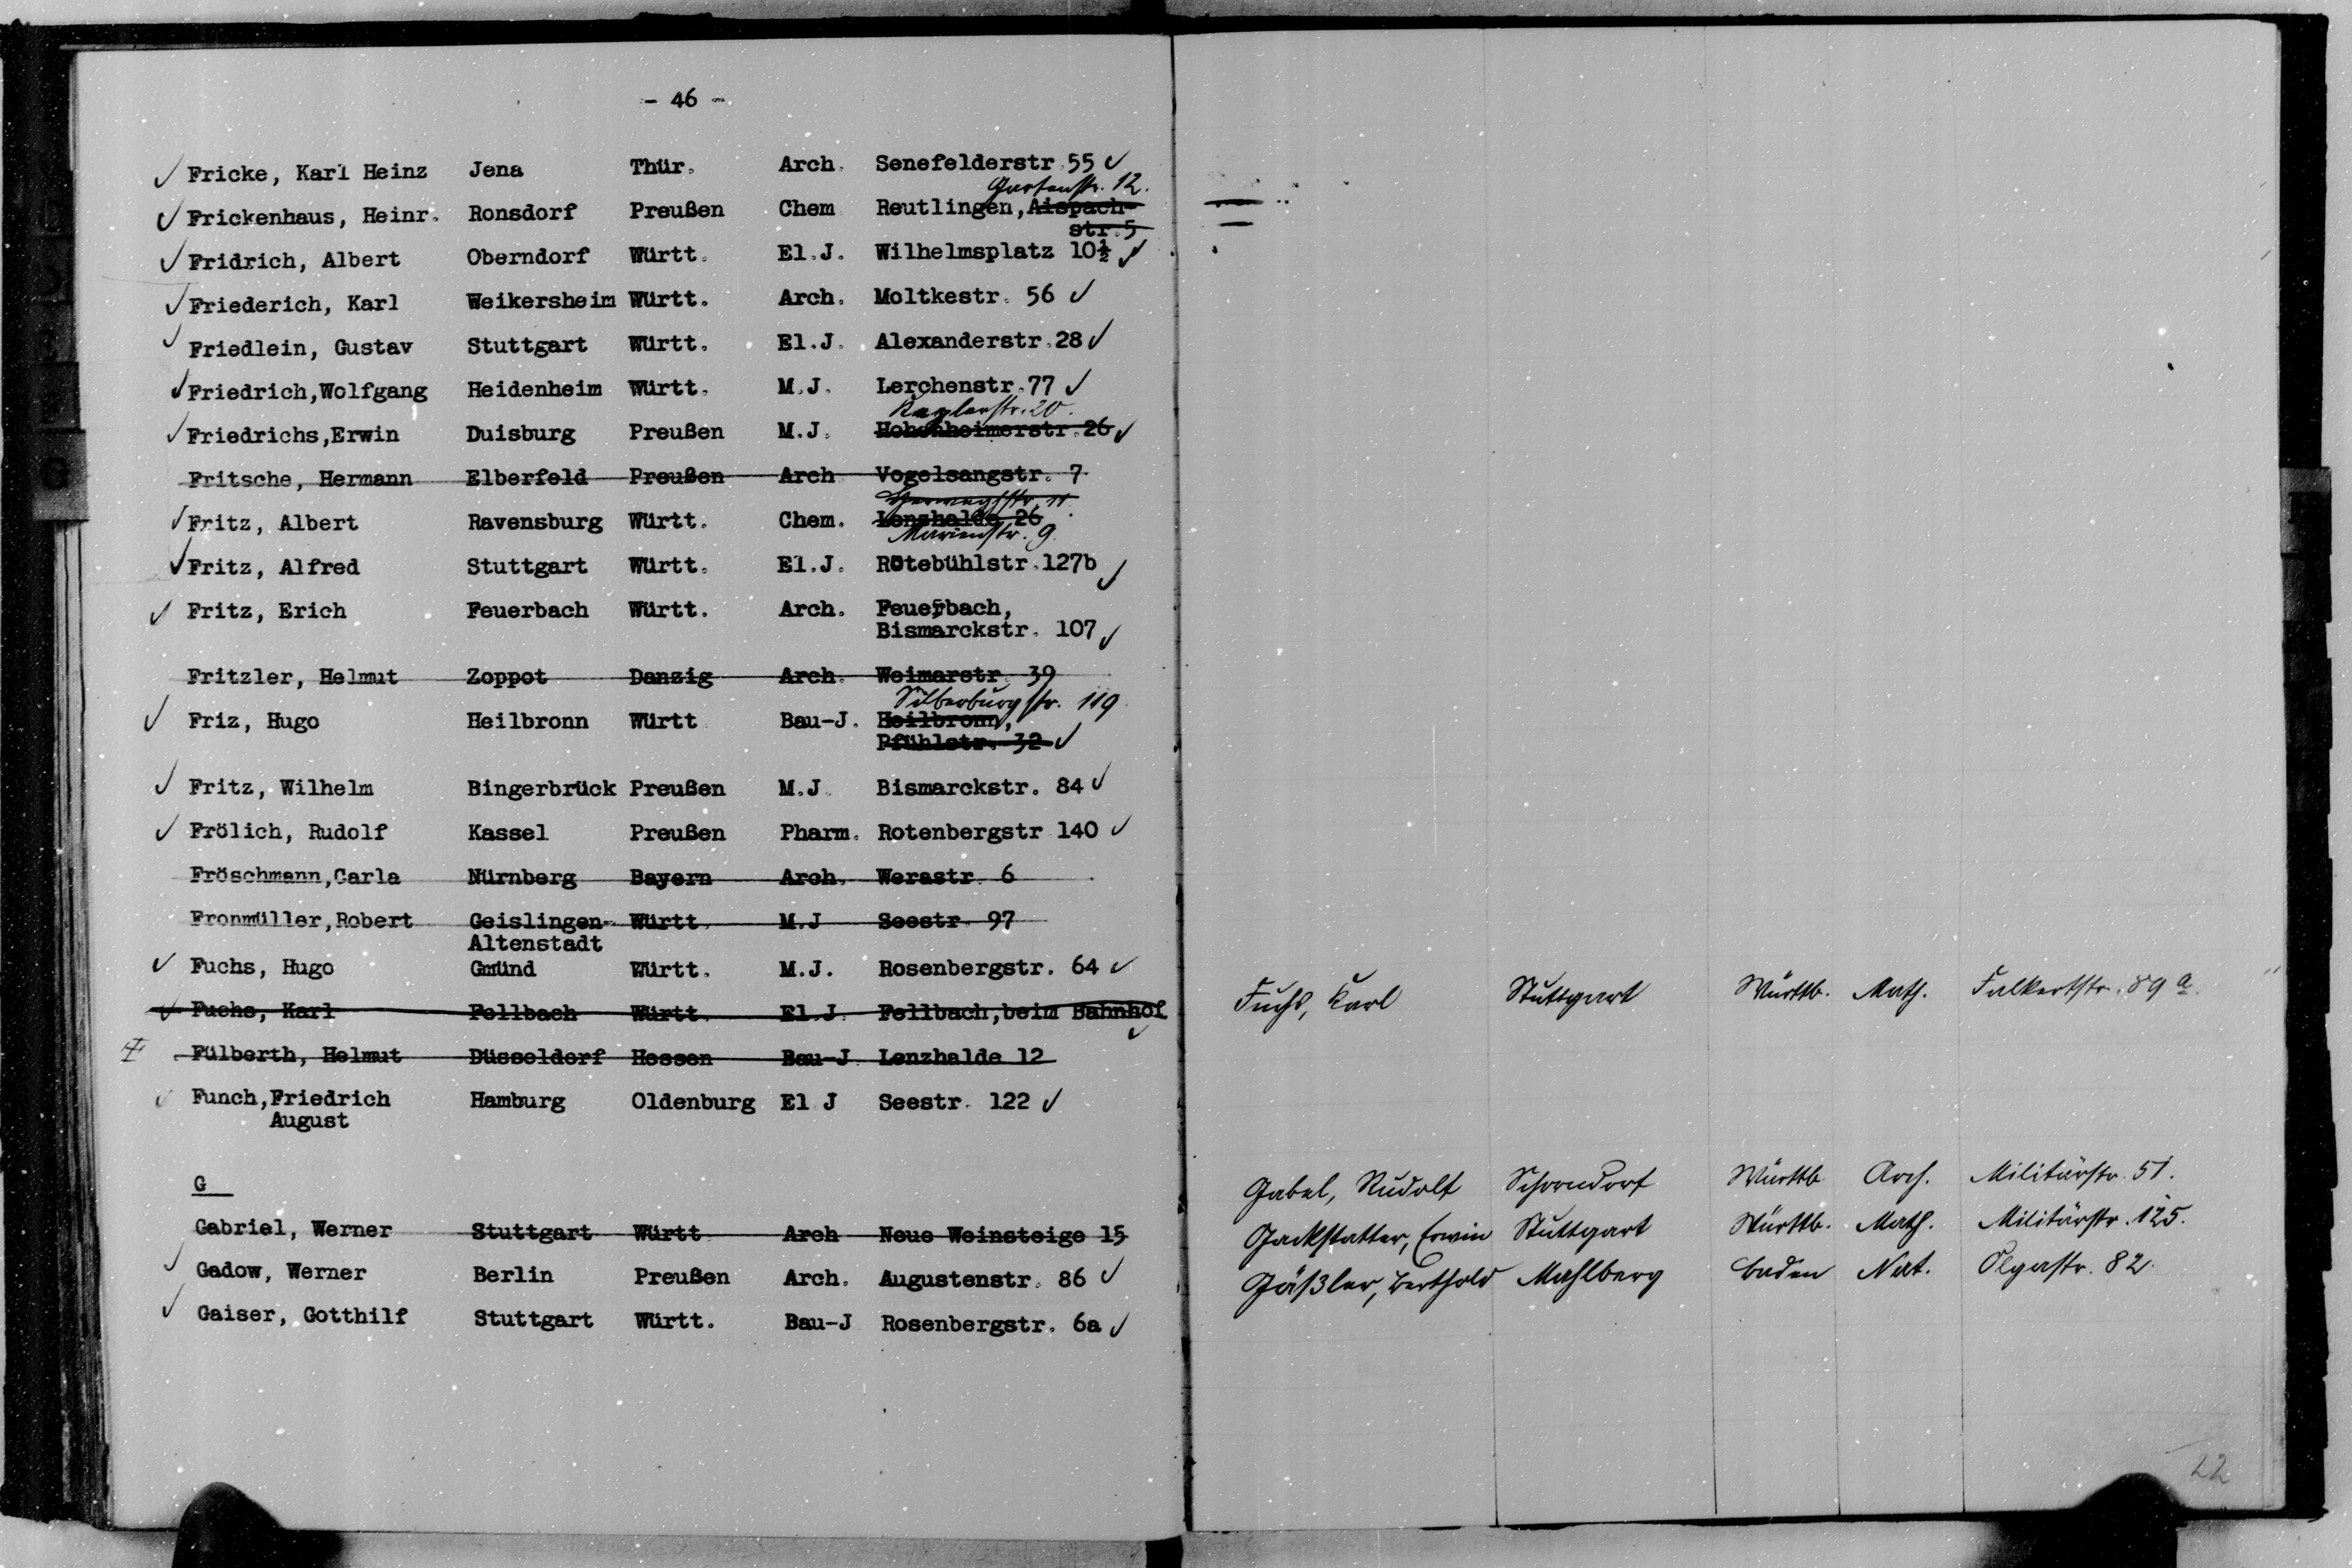 - 46 -
✓ Fricke, Karl Heinz Jena Thür. Arch. Senefelderstr. 55 ✓
Gartenstr. 12.
✓ Frickenhaus, Heinr. Ronsdorf Preußen Chem Reutlingen, Aispach-
str. 5
✓ Fridrich, Albert Oberndorf Württ. El.J. Wilhelmsplatz 10½ ✓
✓ Friederich, Karl Weikersheim Württ. Arch. Moltkestr. 56 ✓
✓ Friedlein, Gustav Stuttgart Württ. El.J. Alexanderstr. 28 ✓
✓ Friedrich, Wolfgang Heidenheim Württ. M.J. Lerchenstr. 77 ✓
✓ Friedrichs, Erwin Duisburg Preußen M.J. Hohenheimerstr. 26 ✓
Fritsche, Hermann Elberfeld Preußen Arch Vogelsangstr. 7
✓ Fritz, Albert Ravensburg Württ. Chem. Lenzhalde 26
Marienstr. 9.
✓ Fritz, Alfred Stuttgart Württ. El.J. Rotebühlstr. 127b ✓
✓ Fritz, Erich Feuerbach Württ. Arch. Feuerbach,
Bismarckstr. 107 ✓
Fritzler, Helmut Zoppot Danzig Arch. Weimarstr. 39
Silberburgstr. 119
✓ Friz, Hugo Heilbronn Württ Bau-J. Heilbronn,
Pfühlstr. 32 ✓
✓ Fritz, Wilhelm Bingerbrück Preußen M.J. Bismarckstr. 84 ✓
✓ Frölich, Rudolf Kassel Preußen Pharm. Rotenbergstr 140 ✓
Fröschmann, Carla Nürnberg Bayern Arch. Werastr. 6
Fronmüller, Robert Geislingen- Württ. M.J Seestr. 97
Altenstadt
✓ Fuchs, Hugo Gmünd Württ. M.J. Rosenbergstr. 64 ✓
✓ Fuchs, Karl Fellbach Württ. El.J. Fellbach, beim Bahnhof ✓
Fülberth, Helmut Düsseldorf Hessen Bau-J. Lenzhalde 12
✓ Funch, Friedrich Hamburg Oldenburg El J Seestr. 122 ✓
August
G
Gabriel, Werner Stuttgart Württ Arch Neue Weinsteige 15
✓ Gadow, Werner Berlin Preußen Arch. Augustenstr. 86 ✓
✓ Gaiser, Gotthilf Stuttgart Württ. Bau-J Rosenbergstr. 6a ✓
Fuchs, Karl Stuttgart Württb. Math. Falkertstr. 89 a.
Gabel, Rudolf Schorndorf Württb Arch. Militärstr. 51.
Gackstatter, Erwin Stuttgart Württb. Math. Militärstr. 125.
Gäßler, Berthold Mahlberg Baden Nat. Olgastr. 82.
22